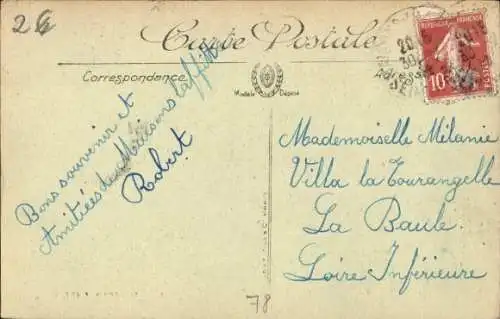 26
Carte Postale
Correspondance
Modèle Déposé
RÉPUBLIQUE FRANÇAISE
10
POSTES
20
30
Bons souvenir et
Amitiées de Maisons Laffitte
Robert
Mademoiselle Mélanie
Villa la Tourangelle
La Baule
Loire Inférieure
78